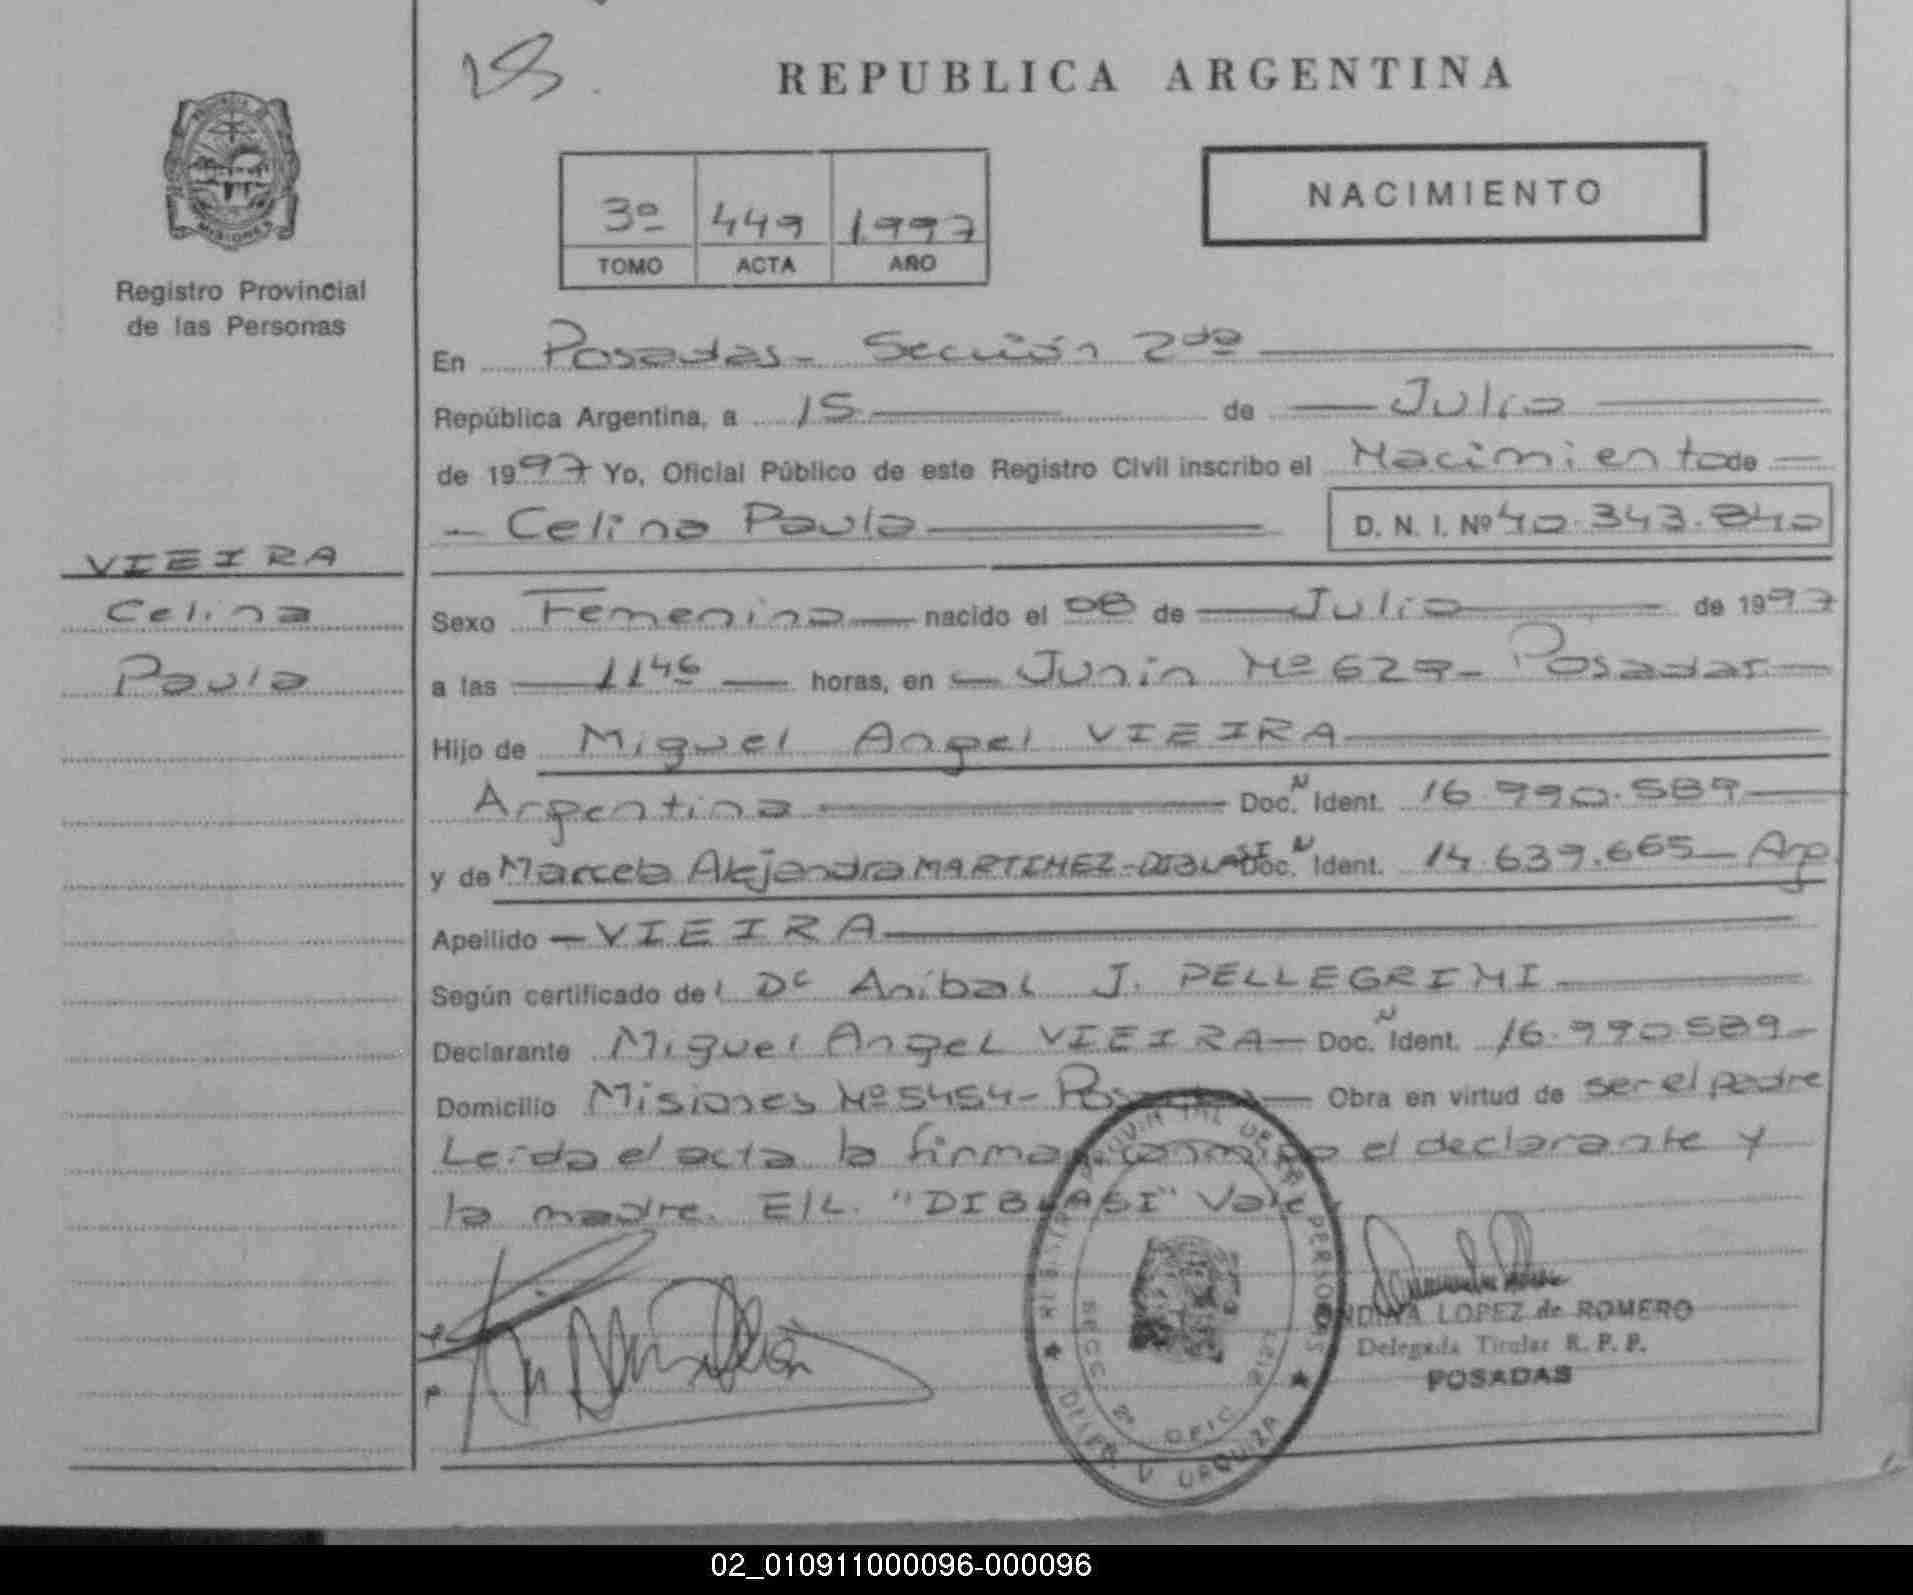 REPUBLICA ARGENTINA
MISIONES
Registro Provincial
de las Personas
3º 449 1997
TOMO ACTA AÑO
NACIMIENTO
En Posadas - Sección 2da
República Argentina, a 15 de Julio
de 1997 Yo, Oficial Público de este Registro Civil inscribo el Nacimiento de
Celina Paula D. N. I. Nº 40.343.840
VIEIRA
Celina
Paula
Sexo Femenino nacido el 08 de Julio de 1997
a las 11 46 horas, en Junin Nº 629 - Posadas
Hijo de Miguel Angel VIEIRA
Argentina Doc. N Ident. 16.990.589
y de Marcela Alejandra MARTINEZ - DIBLASI Doc. N Ident. 14.639.665 - Arg.
Apellido - VIEIRA
Según certificado del Dr Aníbal J. PELLEGRINI
Declarante Miguel Angel VIEIRA - Doc. N Ident. 16.990.589 -
Domicilio Misiones Nº 5454 - Posadas Obra en virtud de ser el padre
Leída el acta la firma conmigo el declarante y
la madre. E/L. "DIBLASI" Vale
REGISTRO PROVINCIAL DE LAS PERSONAS
SECC. 2ª OFIC.
DELEG. V. URQUIZA
LOPEZ de ROMERO
Delegada Titular R. P. P.
POSADAS
02_010911000096-000096